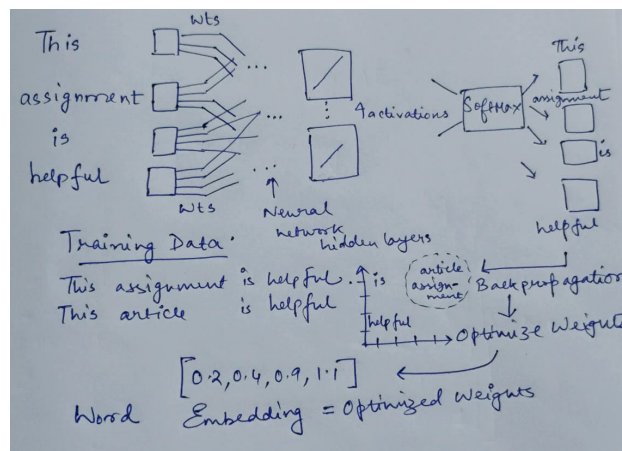 Wts
This
assignment
is
helpful
Wts
...
...
4 activations
Neural
network
hidden layers
Softmax
This
assignment
is
helpful
Training Data.
This assignment is helpful.
This article is helpful
is
helpful
article
assign-
ment
Backpropagation
Optimize Weights
[0.2, 0.4, 0.9, 1.1]
Word Embedding = Optimized Weights